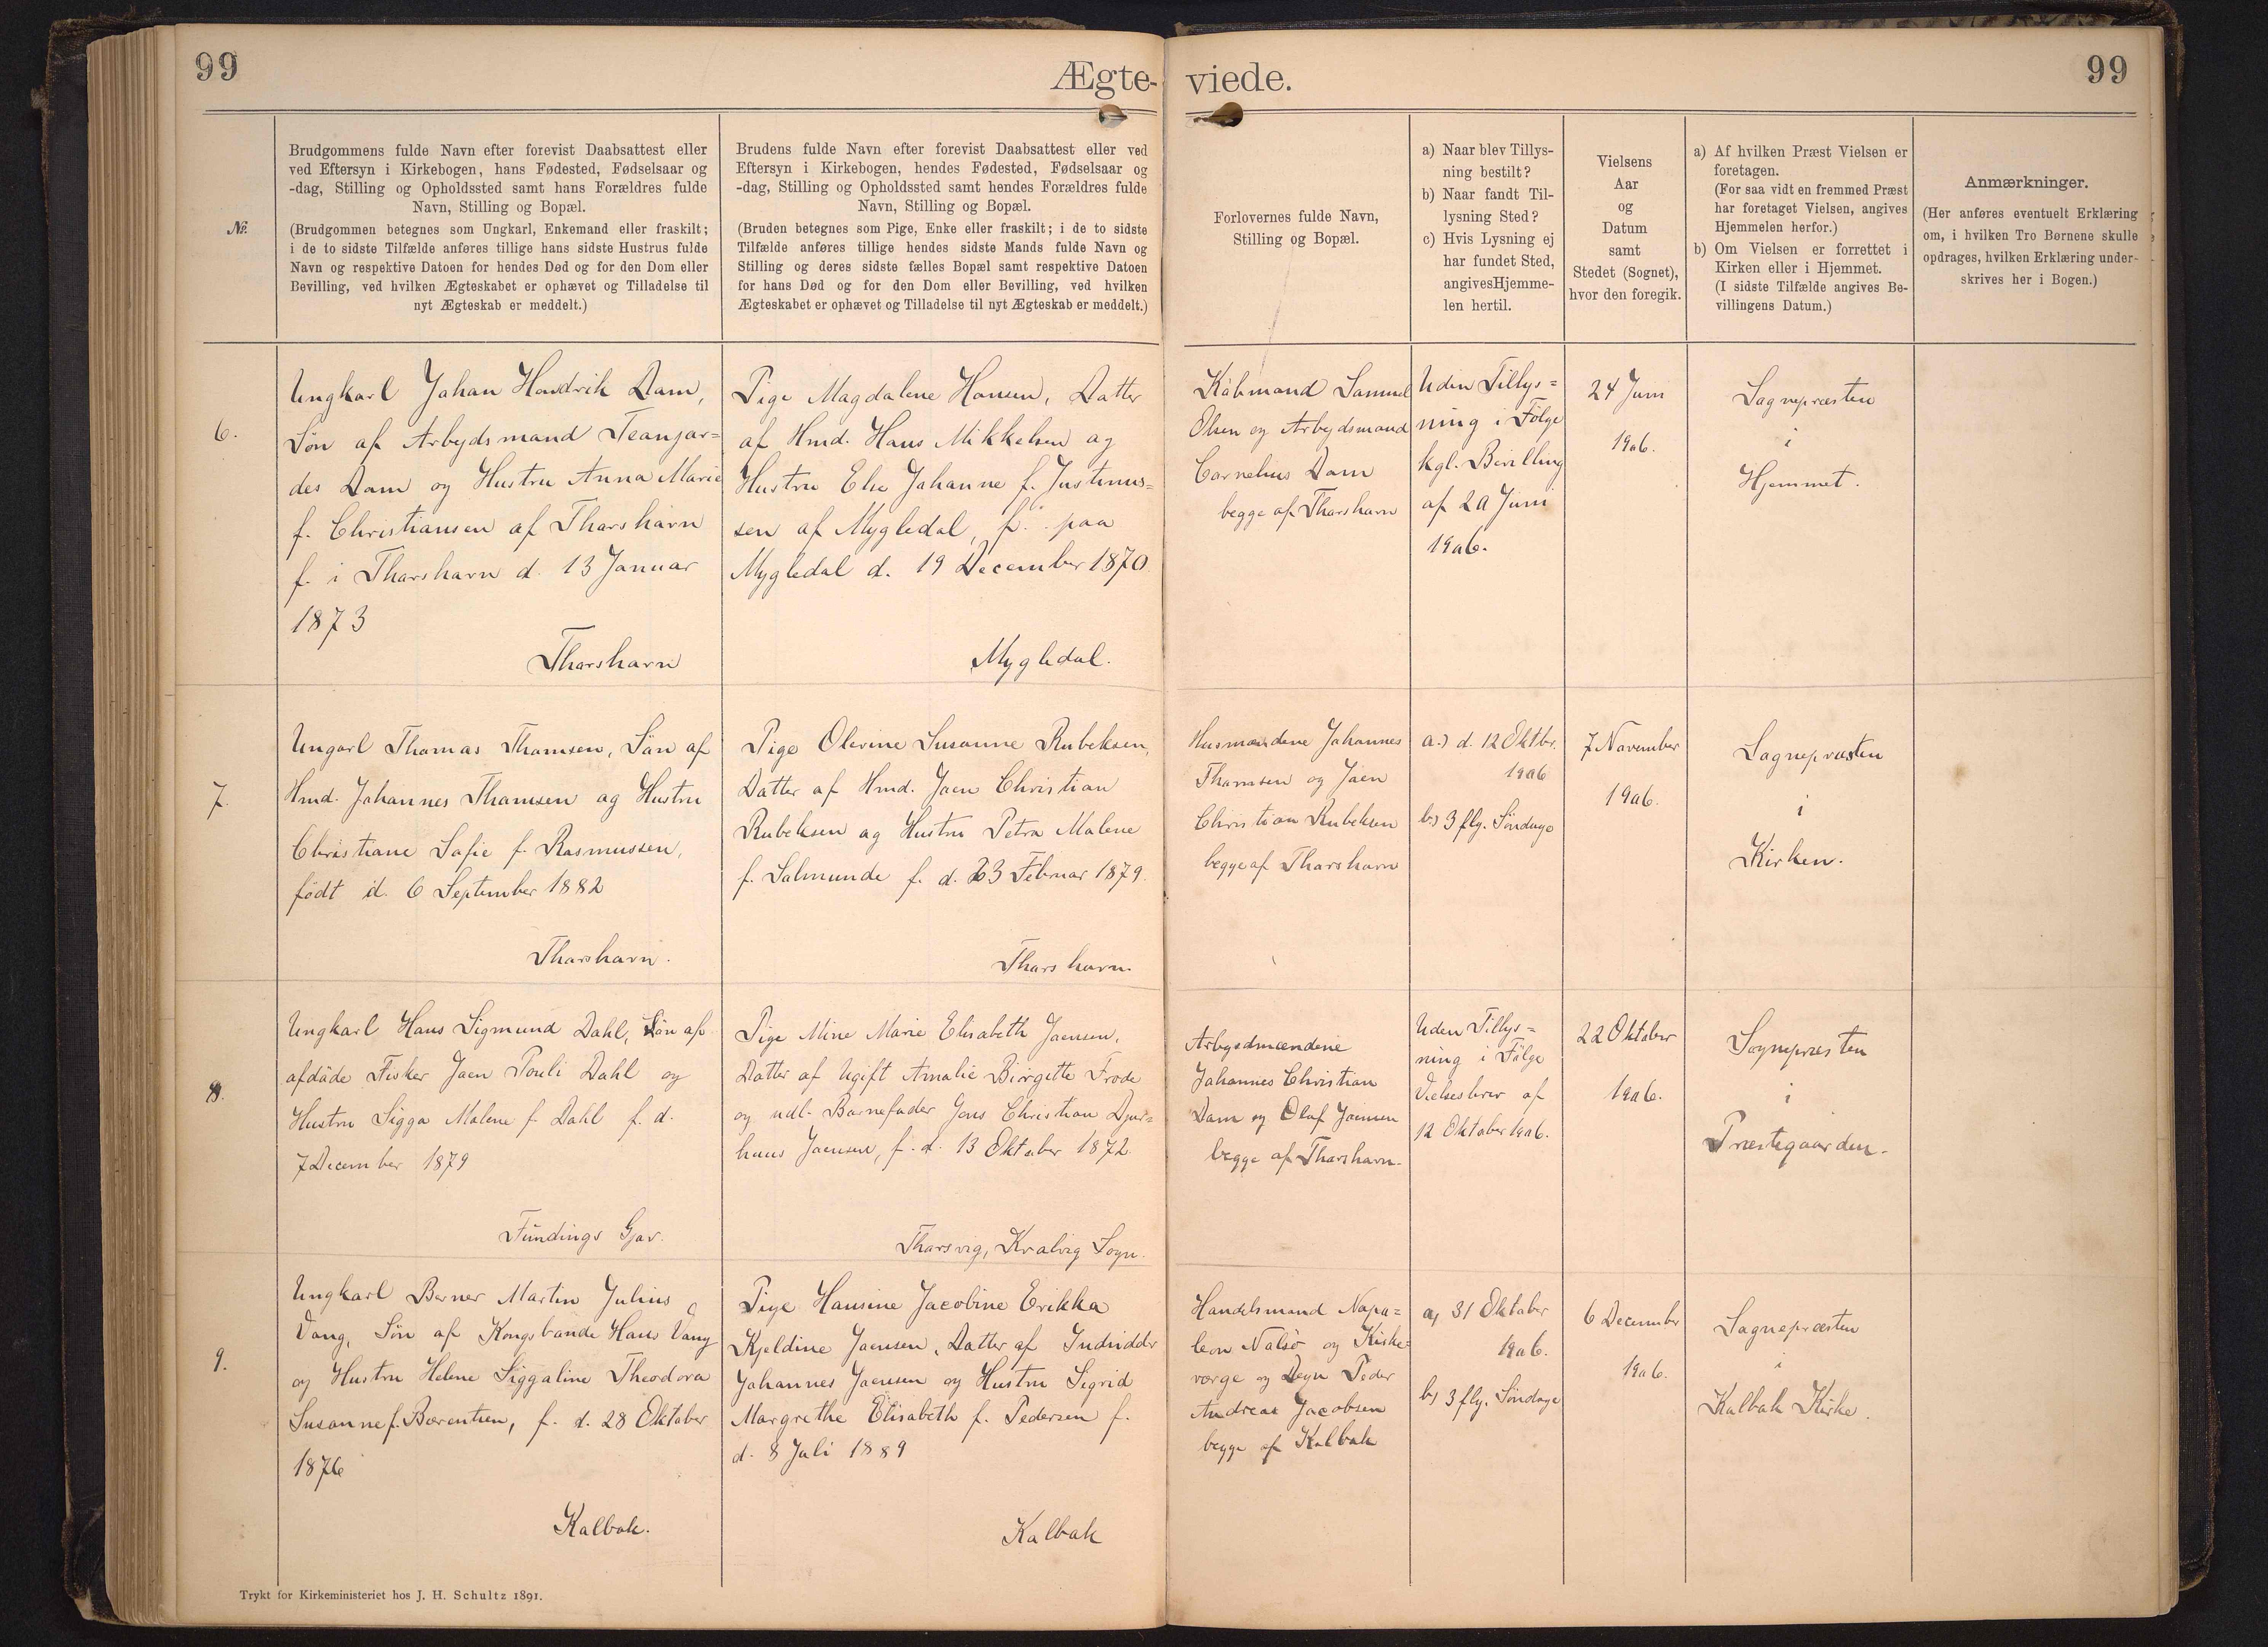 99
Ægte-
viede.
99
Nr.
Brudgommens fulde Navn efter forevist Daabsattest eller
ved Eftersyn i Kirkebogen, hans Fødested, Fødselsaar og
-dag, Stilling og Opholdssted samt hans Forældres fulde
Navn, Stilling og Bopæl.
(Brudgommen betegnes som Ungkarl, Enkemand eller fraskilt;
i de to sidste Tilfælde anføres tillige hans sidste Hustrus fulde
Navn og respektive Datoen for hendes Død og for den Dom eller
Bevilling, ved hvilken Ægteskabet er ophævet og Tilladelse til
nyt Ægteskab er meddelt.)
Brudens fulde Navn efter forevist Daabsattest eller ved
Eftersyn i Kirkebogen, hendes Fødested, Fødselsaar og
-dag, Stilling og Opholdssted samt hendes Forældres fulde
Navn, Stilling og Bopæl.
(Bruden betegnes som Pige, Enke eller fraskilt; i de to sidste
Tilfælde anføres tillige hendes sidste Mands fulde Navn og
Stilling og deres sidste fælles Bopæl samt respektive Datoen
for hans Død og for den Dom eller Bevilling, ved hvilken
Ægteskabet er ophævet og Tilladelse til nyt Ægteskab er meddelt.)
Forlovernes fulde Navn,
Stilling og Bopæl.
a) Naar blev Tillys-
ning bestilt?
b) Naar fandt Til-
lysning Sted?
c) Hvis Lysning ej
har fundet Sted,
angivesHjemme-
len hertil.
Vielsens
Aar
og
Datum
samt
Stedet (Sognet),
hvor den foregik.
a) Af hvilken Præst Vielsen er
foretagen.
(For saa vidt en fremmed Præst
har foretaget Vielsen, angives
Hjemmelen herfor.)
b) Om Vielsen er forrettet i
Kirken eller i Hjemmet.
(I sidste Tilfælde angives Be-
villingens Datum.)
Anmærkninger.
(Her anføres eventuelt Erklæring
om, i hvilken Tro Børnene skulle
opdrages, hvilken Erklæring under-
skrives her i Bogen.)
6.
Ungkarl Johan Hendrik Dam,
Søn af Arbejdsmand Jeanjar=
des Dam og Hustru Anna Marie
f. Christiansen af Thorshavn
f. i Thorshavn d. 13 Januar
1873
Thorshavn
Pige Magdalene Hansen, Datter
af Hmd. Hans Mikkelsen og
Hustru Else Johanne f. Justinus=
sen af Mygledal, f. paa
Mygledal d. 19 December 1870
Mygledal.
Købmand Samuel
Olsen og Arbejdsmand
Cornelius Dam
begge af Thorshavn
Uden Tillys=
ning i Følge
kgl. Bevilling
af 20 Juni
1906.
24 Juni
1906.
Sognepræsten
i
Hjemmet.
7.
Ungarl Thomas Thomsen, Søn af
Hmd. Johannes Thomsen og Hustru
Christiane Sofie f. Rasmussen,
født d. 6 September 1882
Thorshavn.
Pige Olevine Susanne Rubeksen,
Datter af Hmd. Joen Christian
Rubeksen og Hustru Petra Malene
f. Salmunde f. d. 23 Februar 1879.
Thorshavn.
Husmændene Johannes
Thomsen og Joen
Christian Rubeksen
begge af Thorshavn
a.) d. 12 Oktbr.
1906
b.) 3 flg. Søndage
7 November
1906.
Sognepræsten
i
Kirken.
8.
Ungkarl Hans Sigmund Dahl, Søn af
afdøde Fisker Joen Pouli Dahl og
Hustru Sigga Malene f. Dahl f. d.
7 December 1879
Fundings Gjov.
Pige Mine Marie Elisabeth Joensen,
Datter af Ugift Amalie Birgitte Frode
og udl. Barnefader Jens Christian Djur=
huus Joensen, f. d. 13 Oktober 1872.
Thorsvig, Kvalvig Sogn.
Arbejdsmændene
Johannes Christian
Dam og Olaf Joensen
begge af Thorshavn.
Uden Tillys=
ning i Følge
Vielsesbrev af
12 Oktober 1906.
22 Oktober
1906.
Sognepræsten
i
Præstegaarden.
9.
Ungkarl Berner Martin Julius
Vang, Søn af Kongsbonde Hans Vang
og Hustru Helene Siggaline Theodora
Susanne f. Bærentsen, f. d. 28 Oktober
1876
Kalbak.
Pige Hansine Jacobine Erikka
Kjeldine Joensen, Datter af Indridder
Johannes Joensen og Hustru Sigrid
Margrethe Elisabeth f. Pedersen f.
d. 8 Juli 1889
Kalbak
Handelsmand Napo=
leon Nolsø og Kirke=
værge og Degn Peder
Andreas Jacobsen
begge af Kalbak
a) 31 Oktober
1906.
b) 3 flg. Søndage
6 December
1906.
Sognepræsten
i
Kalbak Kirke.
Trykt for Kirkeministeriet hos J. H. Schultz 1891.